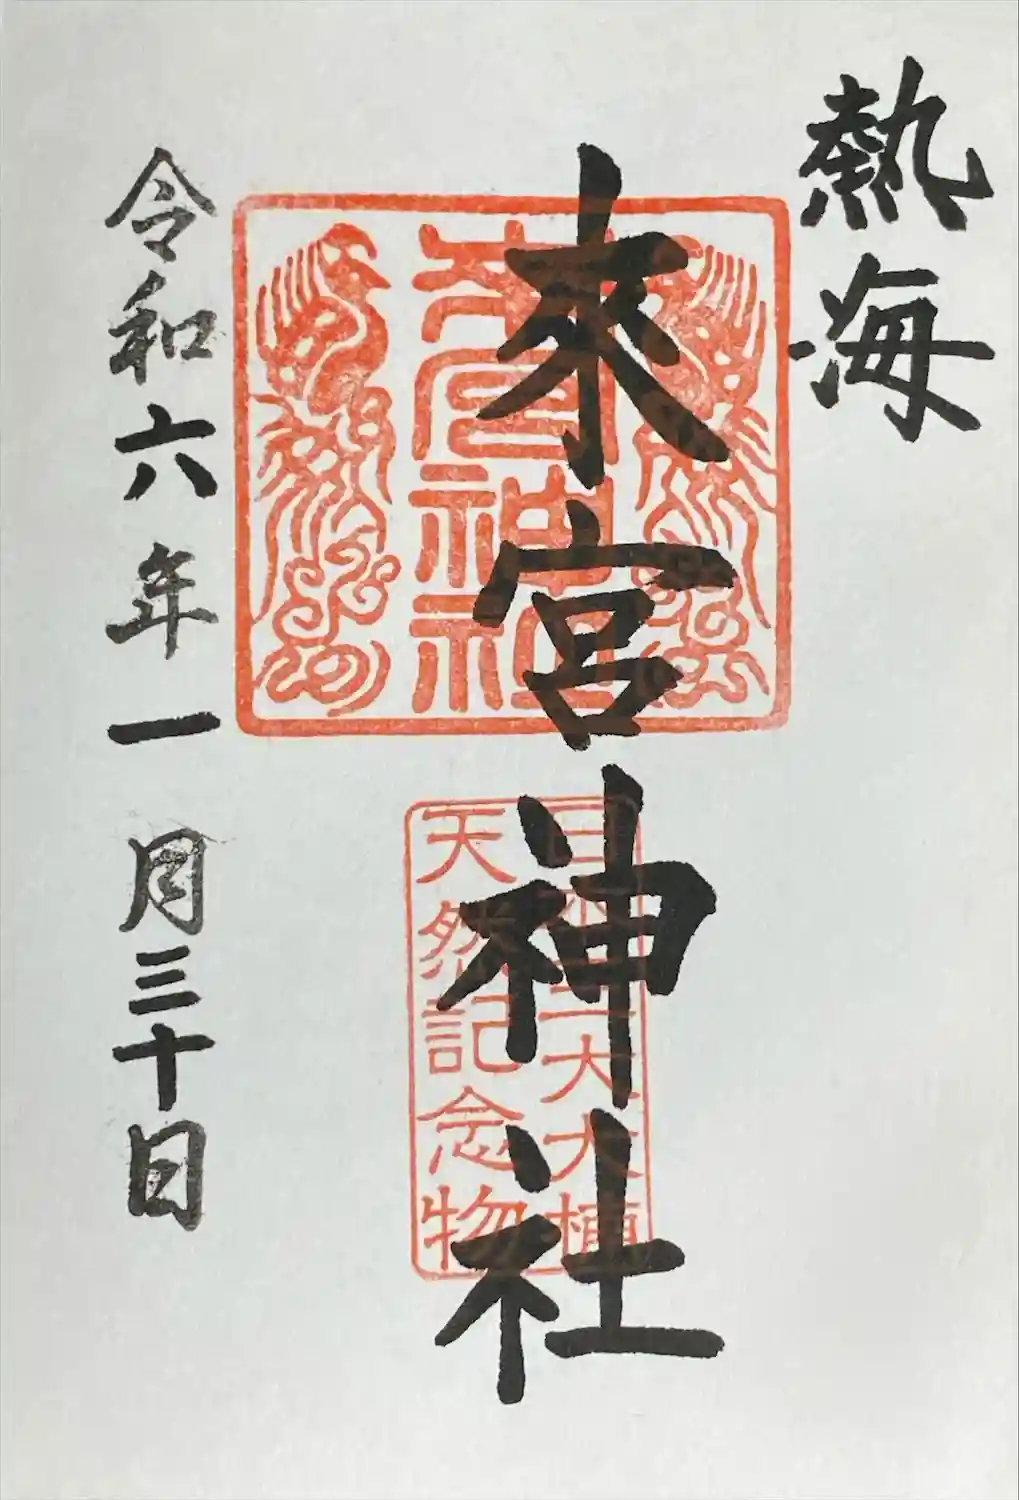 熱海
來宮神社
來宮神社
日本三大大楠
天然記念物
令和六年一月三十日